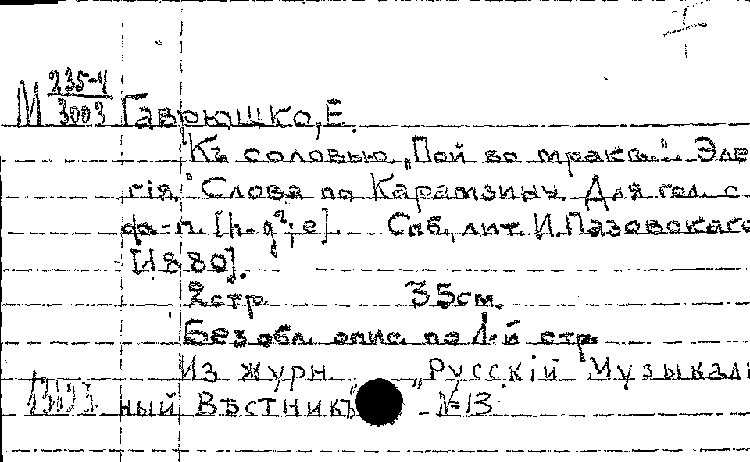 I
М 235-4
3003 Гаврюшко, Е.
"Къ соловью „Пой во мракѣ.." Эле
гія." Слова по Карамзину. Для гол. с
ф-п. [h-g²; e]. Спб., лит. И. Пазовскаго
[1880].
2 стр. 35 см.
Без обл. опис. по 1-й стр.
Из журн. „Русскій Музыкаль
ный Вѣстникъ - № 13